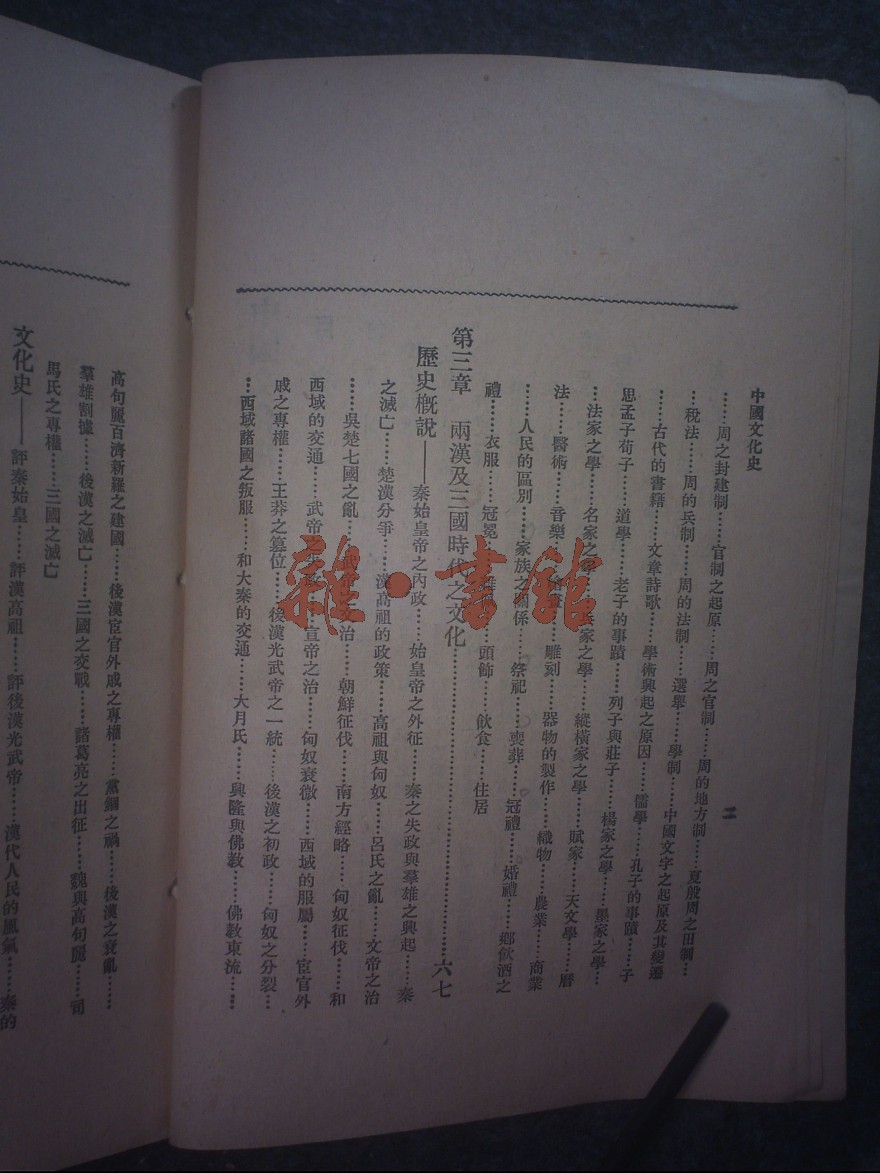 中國文化史
二
周之封建制……官制之起原……周之官制……周的地方制……夏殷周之田制……
……稅法……周的兵制……周的法制……選舉……學制……中國文字之起原及其變遷
……古代的書籍……文章詩歌……學術興起之原因……儒學……孔子的事蹟……子
思孟子荀子……道學……老子的事蹟……列子與莊子……楊家之學……墨家之學……
……法家之學……名家之學……兵家之學……縱橫家之學……賦家……天文學……曆
法……醫術……音樂……繪畫……雕刻……器物的製作……織物……農業……商業
……人民的區別……家族之關係……祭祀……喪葬……冠禮……婚禮……鄉飲酒之
禮……衣服……冠冕……頭飾……飲食……住居
第三章 兩漢及三國時代之文化……六七
歷史概說——秦始皇帝之內政……始皇帝之外征……秦之失政與羣雄之興起……秦
之滅亡……楚漢分爭……漢高祖的政策……高祖與匈奴……呂氏之亂……文帝之治
……吳楚七國之亂……武帝之文治……朝鮮征伐……南方經略……匈奴征伐……和
西域的交通……武帝之失政……宣帝之治……匈奴衰微……西域的服屬……宦官外
戚之專權……王莽之篡位……後漢光武帝之一統……後漢之初政……匈奴之分裂……
……西域諸國之叛服……和大秦的交通……大月氏……興隆與佛教……佛教東流……
高句麗百濟新羅之建國……後漢宦官外戚之專權……黨錮之禍……後漢之衰亂……
羣雄割據……後漢之滅亡……三國之交戰……諸葛亮之出征……魏與高句麗……司
馬氏之專權……三國之滅亡
文化史——評秦始皇……評漢高祖……評後漢光武帝……漢代人民的風氣……秦的
雜·書館